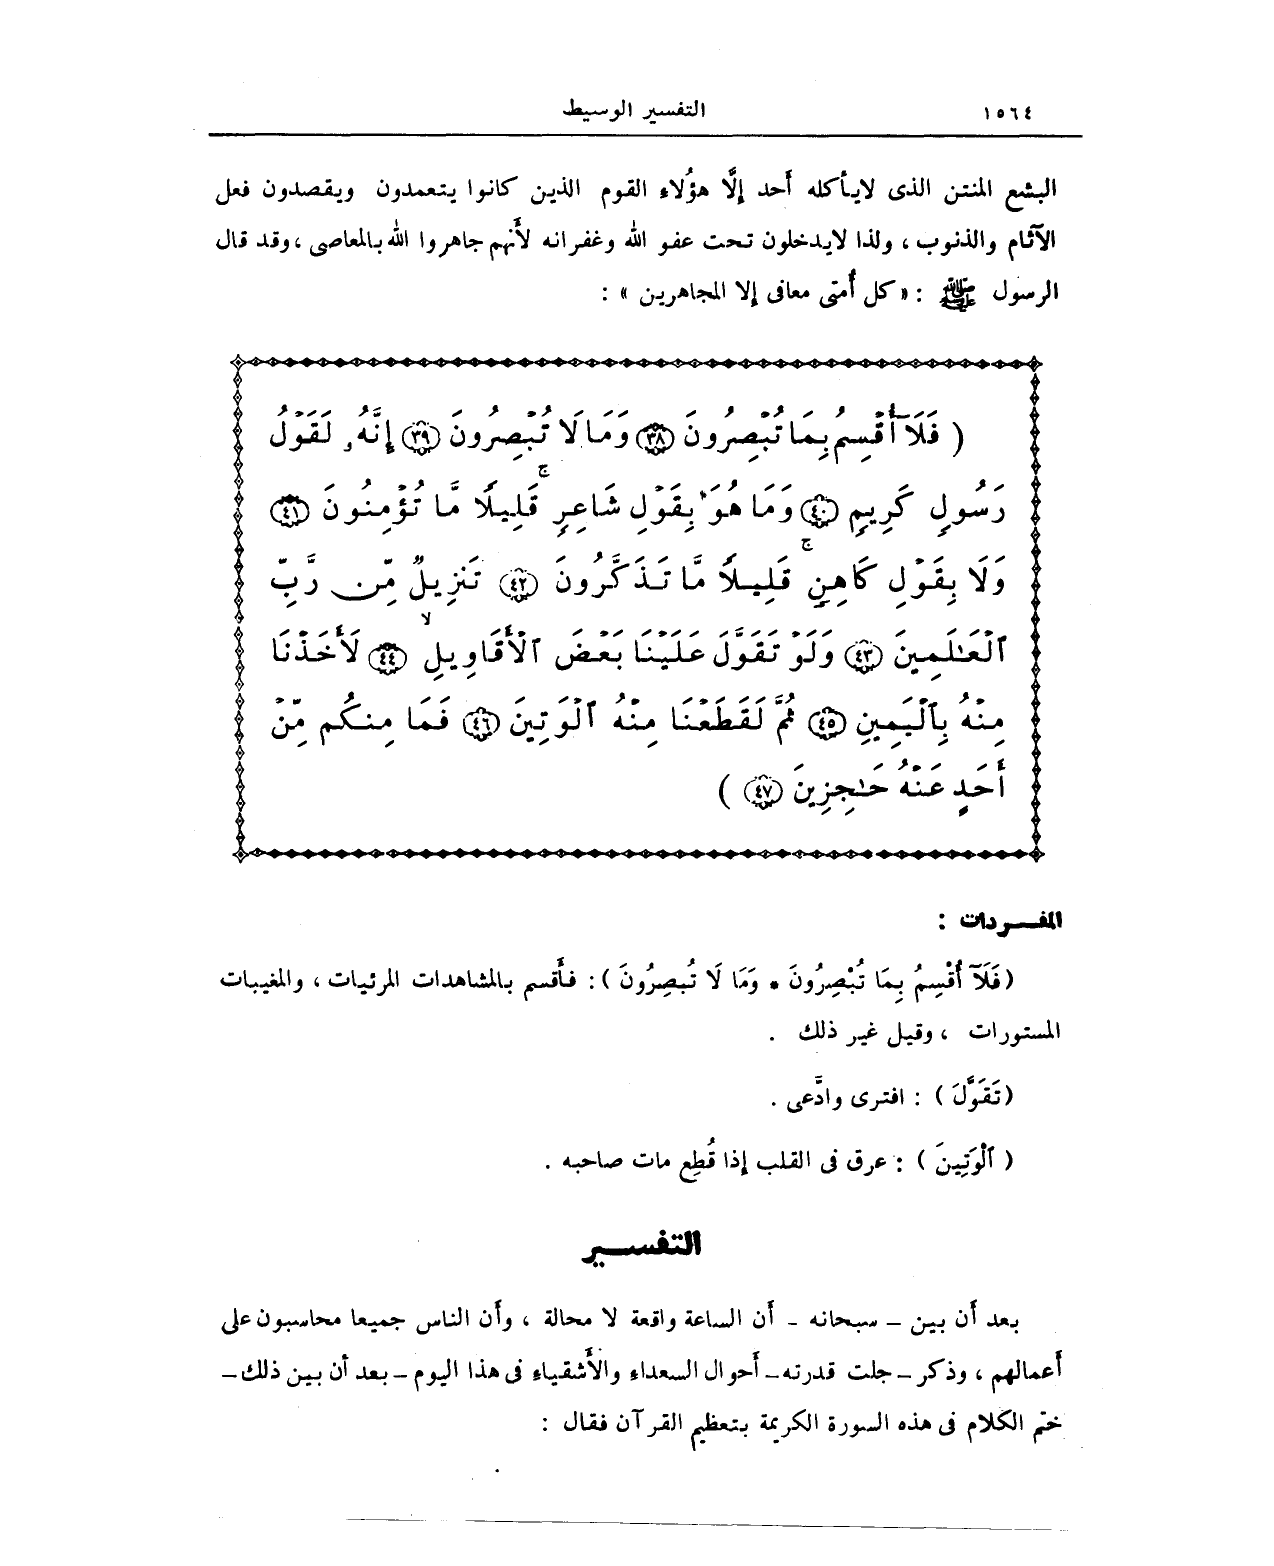 ١٥٦٤ التفسير الوسيط
البشع المنتن الذى لايأكله أحد إلَّا هؤُلاء القوم الذين كانوا يتعمدون ويقصدون فعل
الآثام والذنوب ، ولذا لايدخلون تحت عفو الله وغفرانه لأَنهم جاهروا الله بالمعاصى ، وقد قال
الرسول ﷺ : « كل أُمتى معافى إلا المجاهرين » :
( فَلَآ أُقْسِمُ بِمَا تُبْصِرُونَ ٣٨ وَمَا لَا تُبْصِرُونَ ٣٩ إِنَّهُۥ لَقَوْلُ
رَسُولٍ كَرِيمٍ ٤٠ وَمَا هُوَ بِقَوْلِ شَاعِرٍ ۚ قَلِيلًا مَّا تُؤْمِنُونَ ٤١
وَلَا بِقَوْلِ كَاهِنٍ ۚ قَلِيلًا مَّا تَذَكَّرُونَ ٤٢ تَنزِيلٌ مِّن رَّبِّ
ٱلْعَٰلَمِينَ ٤٣ وَلَوْ تَقَوَّلَ عَلَيْنَا بَعْضَ ٱلْأَقَاوِيلِ ۙ ٤٤ لَأَخَذْنَا
مِنْهُ بِٱلْيَمِينِ ٤٥ ثُمَّ لَقَطَعْنَا مِنْهُ ٱلْوَتِينَ ٤٦ فَمَا مِنكُم مِّنْ
أَحَدٍ عَنْهُ حَٰجِزِينَ ٤٧ )
المفـــردات :
( فَلَآ أُقْسِمُ بِمَا تُبْصِرُونَ * وَمَا لَا تُبصِرُونَ ) : فأَقسم بالمشاهدات المرئيات ، والمغيبات
المستورات ، وقيل غير ذلك .
( تَقَوَّلَ ) : افترى وادَّعى .
( ٱلْوَتِينَ ) : عرق فى القلب إذا قُطِع مات صاحبه .
التفســـير
بعد أَن بين - سبحانه - أَن الساعة واقعة لا محالة ، وأَن الناس جميعا محاسبون على
أَعمالهم ، وذكر - جلت قدرته - أَحوال السعداء والأَشقياء فى هذا اليوم - بعد أن بين ذلك -
ختم الكلام فى هذه السورة الكريمة بتعظيم القرآن فقال :